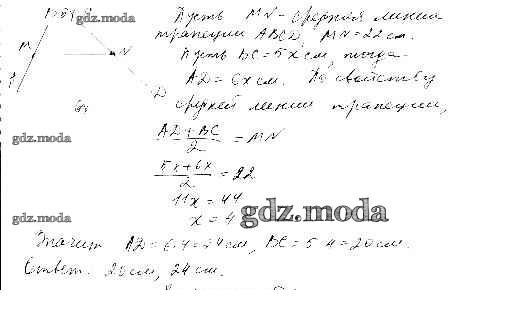 gdz.moda
Пусть MN - средняя линия
трапеции ABCD, MN = 22 см.
M N
gdz.moda
Пусть BC = 5x см, тогда
AD = 6x см. По свойству
D
средней линии трапеции,
gdz.moda
AD + BC / 2 = MN
5x + 6x / 2 = 22
11x = 44
x = 4
gdz.moda
gdz.moda
Значит AD = 6·4 = 24 см, BC = 5·4 = 20 см.
Ответ. 20 см, 24 см.